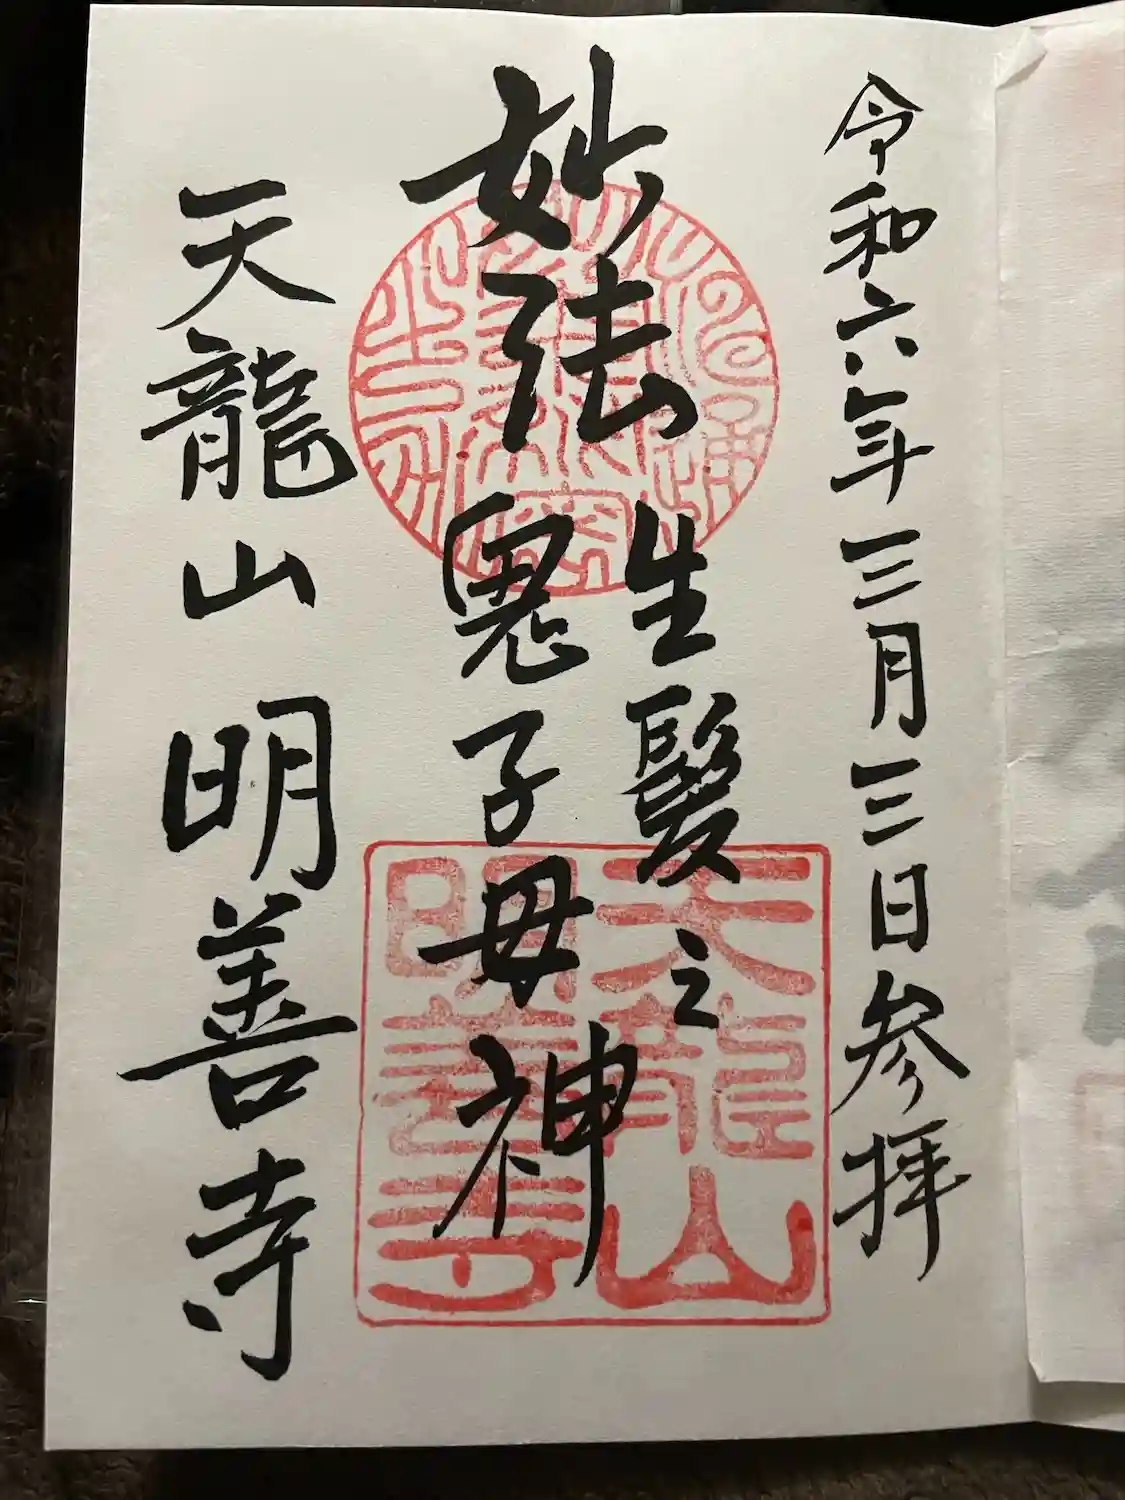 令和六年三月三日参拝
妙法
生髪之
鬼子母神
天龍山 明善寺
天龍山
明善寺